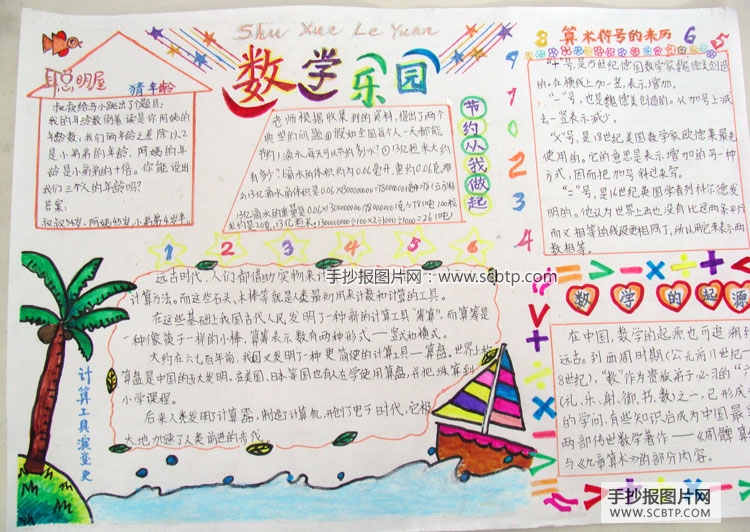 Shu Xue Le Yuan
数学乐园
聪明屋
猜年龄
叔叔给马小跳出了个题目:
我的月龄数倒着读是你阿姨的
年龄数,我们两年龄之差除以2
是小弟弟的年龄,阿姨的年
龄是小弟弟的十倍。你能说出
我们三个人的年龄吗?
答案:
叔叔54岁,阿姨45岁,小弟弟4岁半。
老师根据收集到的资料,提出了两个
典型的问题:①假如全国每个人一天都能
节约1滴水,每天可以节约多少水?②13亿粒米大约
有多少?1滴水的体积约为0.06毫升,重约0.06克,那
么13亿滴水的体积是
13亿滴水的重量是
节约从我做起
9
7
1
0
2
3
4
8
算术符号的来历
6
5
“+”号,是15世纪德国数学家魏德美创造
的。在横线上加一竖,表示增加。
“-”号,也是魏德美创造的。从加号上减
去一竖表示减少。
“×”号,是18世纪美国数学家欧德莱最先
使用的。它的意思是表示增加的另一种
方式,因而把加号斜过来写。
“=”号,是16世纪英国学者列科尔德发
明的。他认为世界上再也没有比这两条平行
而又相等的线段更相同了,所以用它来表示两
数相等。
1 2 3 4 5 6
远古时代,人们都借助实物来计
计算方法。而这些石头、木棒等就是人类最初用来计数和计算的工具。
在这些基础上我国古代人民发明了一种新的计算工具“算筹”,而算筹是
一种像筷子一样的小棒,算筹表示数有两种形式——竖式和横式。
大约在六七百年前,我国又发明了一种更简便的计算工具——算盘。世界上
算盘是中国的五大发明。在美国、日本等国也有人在学使用算盘,并把珠算列
小学课程。
后来人类发明了计算器,制造了计算机,开创了电子时代,它极
大地加速了人类前进的步伐。
计算工具演变史
÷ = > - × ÷ +
数学的起源
在中国,数学的起源也可追溯到
远古。到西周时期(公元前11世纪—前
8世纪),“数”作为贵族弟子必习的“六
(礼、乐、射、御、书、数)之一,已形成
的学问,有些知识后成为中国最
两部传世数学著作——《周髀算
与《九章算术》的部分内容。
手抄报图片网:www.scbtp.com
手抄报图片网
WWW.SCBTP.COM